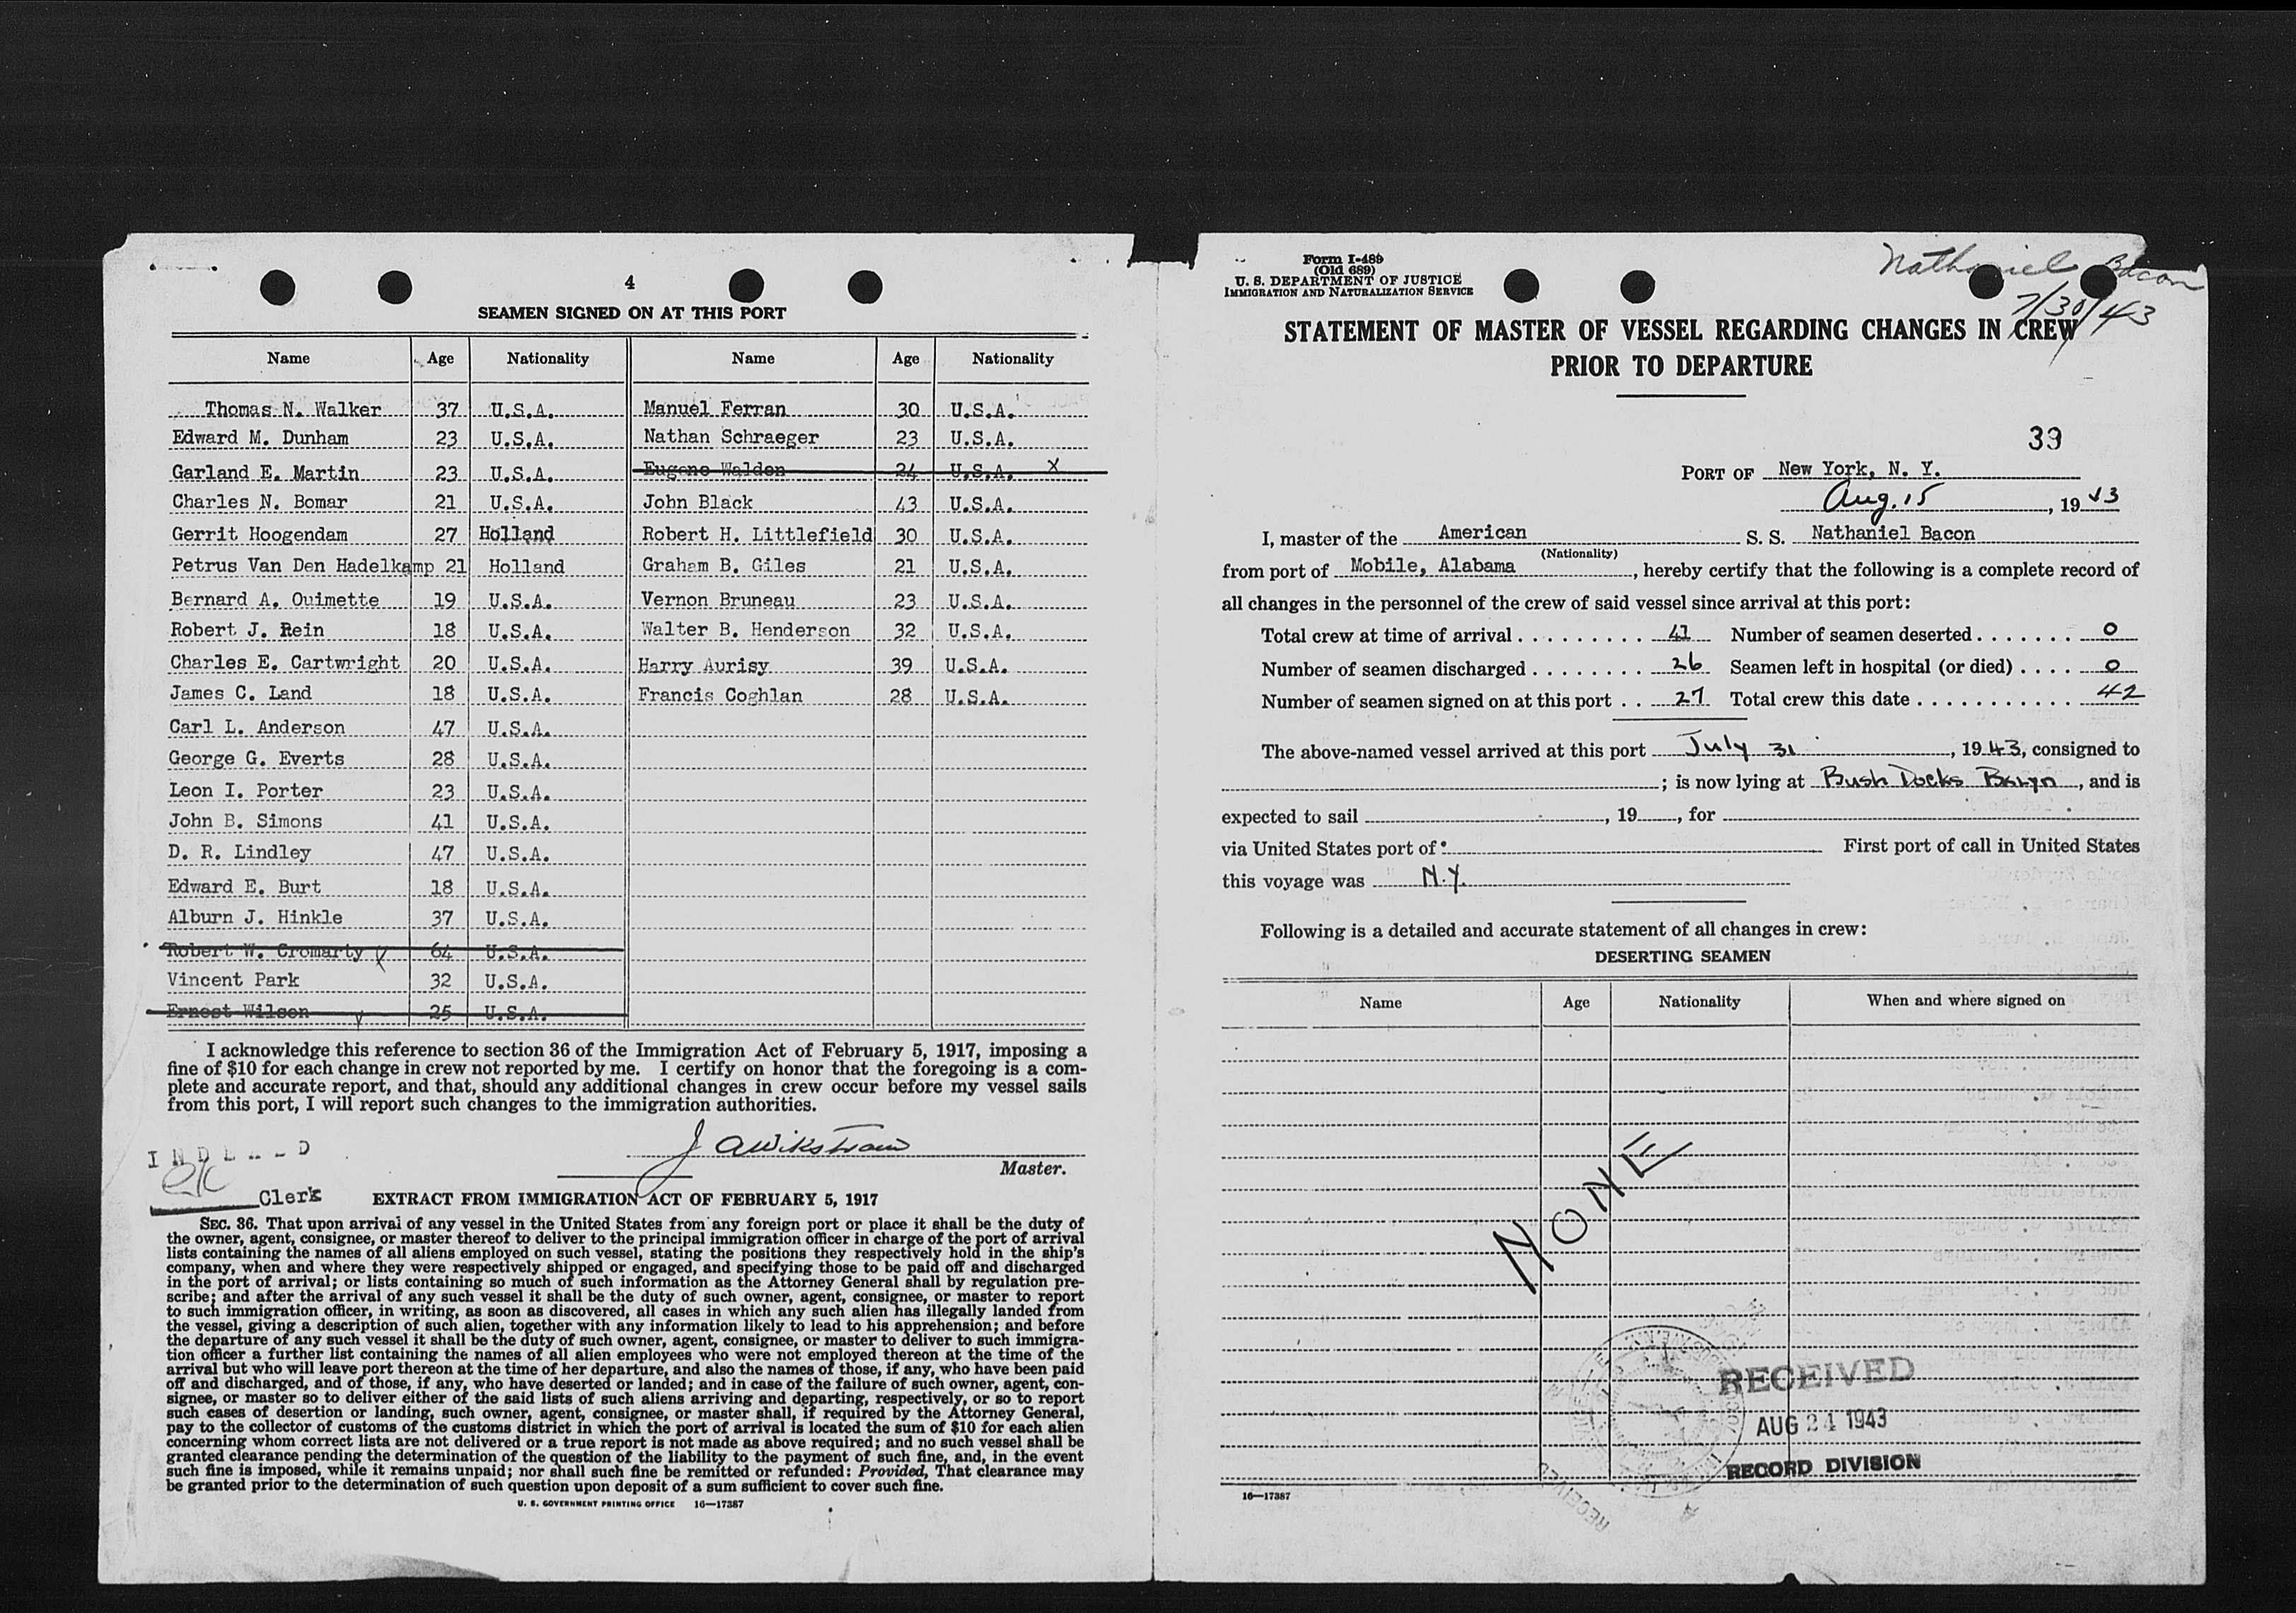 4
SEAMEN SIGNED ON AT THIS PORT
Name Age Nationality Name Age Nationality
Thomas N. Walker 37 U.S.A. Manuel Ferran 30 U.S.A.
Edward M. Dunham 23 U.S.A. Nathan Schraeger 23 U.S.A.
Garland E. Martin 23 U.S.A. Eugene Walden 24 U.S.A. X
Charles N. Bomar 21 U.S.A. John Black 43 U.S.A.
Gerrit Hoogendam 27 Holland Robert H. Littlefield 30 U.S.A.
Petrus Van Den Hadelkamp 21 Holland Graham B. Giles 21 U.S.A.
Bernard A. Ouimette 19 U.S.A. Vernon Bruneau 23 U.S.A.
Robert J. Rein 18 U.S.A. Walter B. Henderson 32 U.S.A.
Charles E. Cartwright 20 U.S.A. Harry Aurisy 39 U.S.A.
James C. Land 18 U.S.A. Francis Coghlan 28 U.S.A.
Carl L. Anderson 47 U.S.A.
George G. Everts 28 U.S.A.
Leon I. Porter 23 U.S.A.
John B. Simons 41 U.S.A.
D. R. Lindley 47 U.S.A.
Edward E. Burt 18 U.S.A.
Alburn J. Hinkle 37 U.S.A.
Robert W. Cromarty 64 U.S.A.
Vincent Park 32 U.S.A.
Ernest Wilson 25 U.S.A.
I acknowledge this reference to section 36 of the Immigration Act of February 5, 1917, imposing a
fine of $10 for each change in crew not reported by me. I certify on honor that the foregoing is a com-
plete and accurate report, and that, should any additional changes in crew occur before my vessel sails
from this port, I will report such changes to the immigration authorities.
J A Wikstrom
Master.
Clerk
EXTRACT FROM IMMIGRATION ACT OF FEBRUARY 5, 1917
SEC. 36. That upon arrival of any vessel in the United States from any foreign port or place it shall be the duty of
the owner, agent, consignee, or master thereof to deliver to the principal immigration officer in charge of the port of arrival
lists containing the names of all aliens employed on such vessel, stating the positions they respectively hold in the ship's
company, when and where they were respectively shipped or engaged, and specifying those to be paid off and discharged
in the port of arrival; or lists containing so much of such information as the Attorney General shall by regulation pre-
scribe; and after the arrival of any such vessel it shall be the duty of such owner, agent, consignee, or master to report
to such immigration officer, in writing, as soon as discovered, all cases in which any such alien has illegally landed from
the vessel, giving a description of such alien, together with any information likely to lead to his apprehension; and before
the departure of any such vessel it shall be the duty of such owner, agent, consignee, or master to deliver to such immigra-
tion officer a further list containing the names of all alien employees who were not employed thereon at the time of the
arrival but who will leave port thereon at the time of her departure, and also the names of those, if any, who have been paid
off and discharged, and of those, if any, who have deserted or landed; and in case of the failure of such owner, agent, con-
signee, or master so to deliver either of the said lists of such aliens arriving and departing, respectively, or so to report
such cases of desertion or landing, such owner, agent, consignee, or master shall, if required by the Attorney General,
pay to the collector of customs of the customs district in which the port of arrival is located the sum of $10 for each alien
concerning whom correct lists are not delivered or a true report is not made as above required; and no such vessel shall be
granted clearance pending the determination of the question of the liability to the payment of such fine, and, in the event
such fine is imposed, while it remains unpaid; nor shall such fine be remitted or refunded: Provided, That clearance may
be granted prior to the determination of such question upon deposit of a sum sufficient to cover such fine.
U. S. GOVERNMENT PRINTING OFFICE 16—17387
Form I-489
(Old 689)
U. S. DEPARTMENT OF JUSTICE
IMMIGRATION AND NATURALIZATION SERVICE
Nathaniel Bacon
7/30/43
STATEMENT OF MASTER OF VESSEL REGARDING CHANGES IN CREW
PRIOR TO DEPARTURE
39
PORT OF New York, N. Y.
Aug. 15, 1943
I, master of the American S. S. Nathaniel Bacon
(Nationality)
from port of Mobile, Alabama, hereby certify that the following is a complete record of
all changes in the personnel of the crew of said vessel since arrival at this port:
Total crew at time of arrival 41 Number of seamen deserted 0
Number of seamen discharged 26 Seamen left in hospital (or died) 0
Number of seamen signed on at this port 27 Total crew this date 42
The above-named vessel arrived at this port July 31, 1943, consigned to
; is now lying at Bush Docks Bklyn, and is
expected to sail , 19 , for
via United States port of First port of call in United States
this voyage was N.Y.
Following is a detailed and accurate statement of all changes in crew:
DESERTING SEAMEN
Name Age Nationality When and where signed on
NONE
RECEIVED
AUG 24 1943
RECORD DIVISION
16—17387